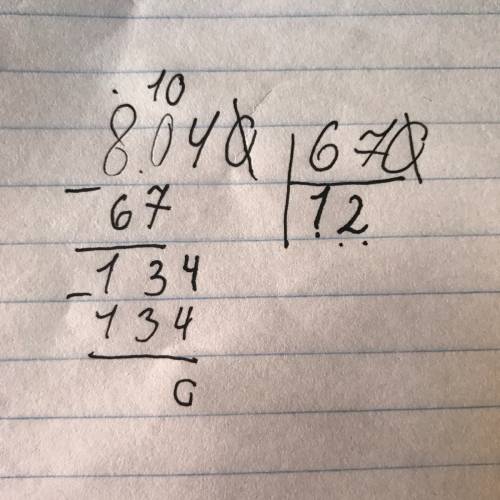 10
8.040 670
- 67 12
134
- 134
0